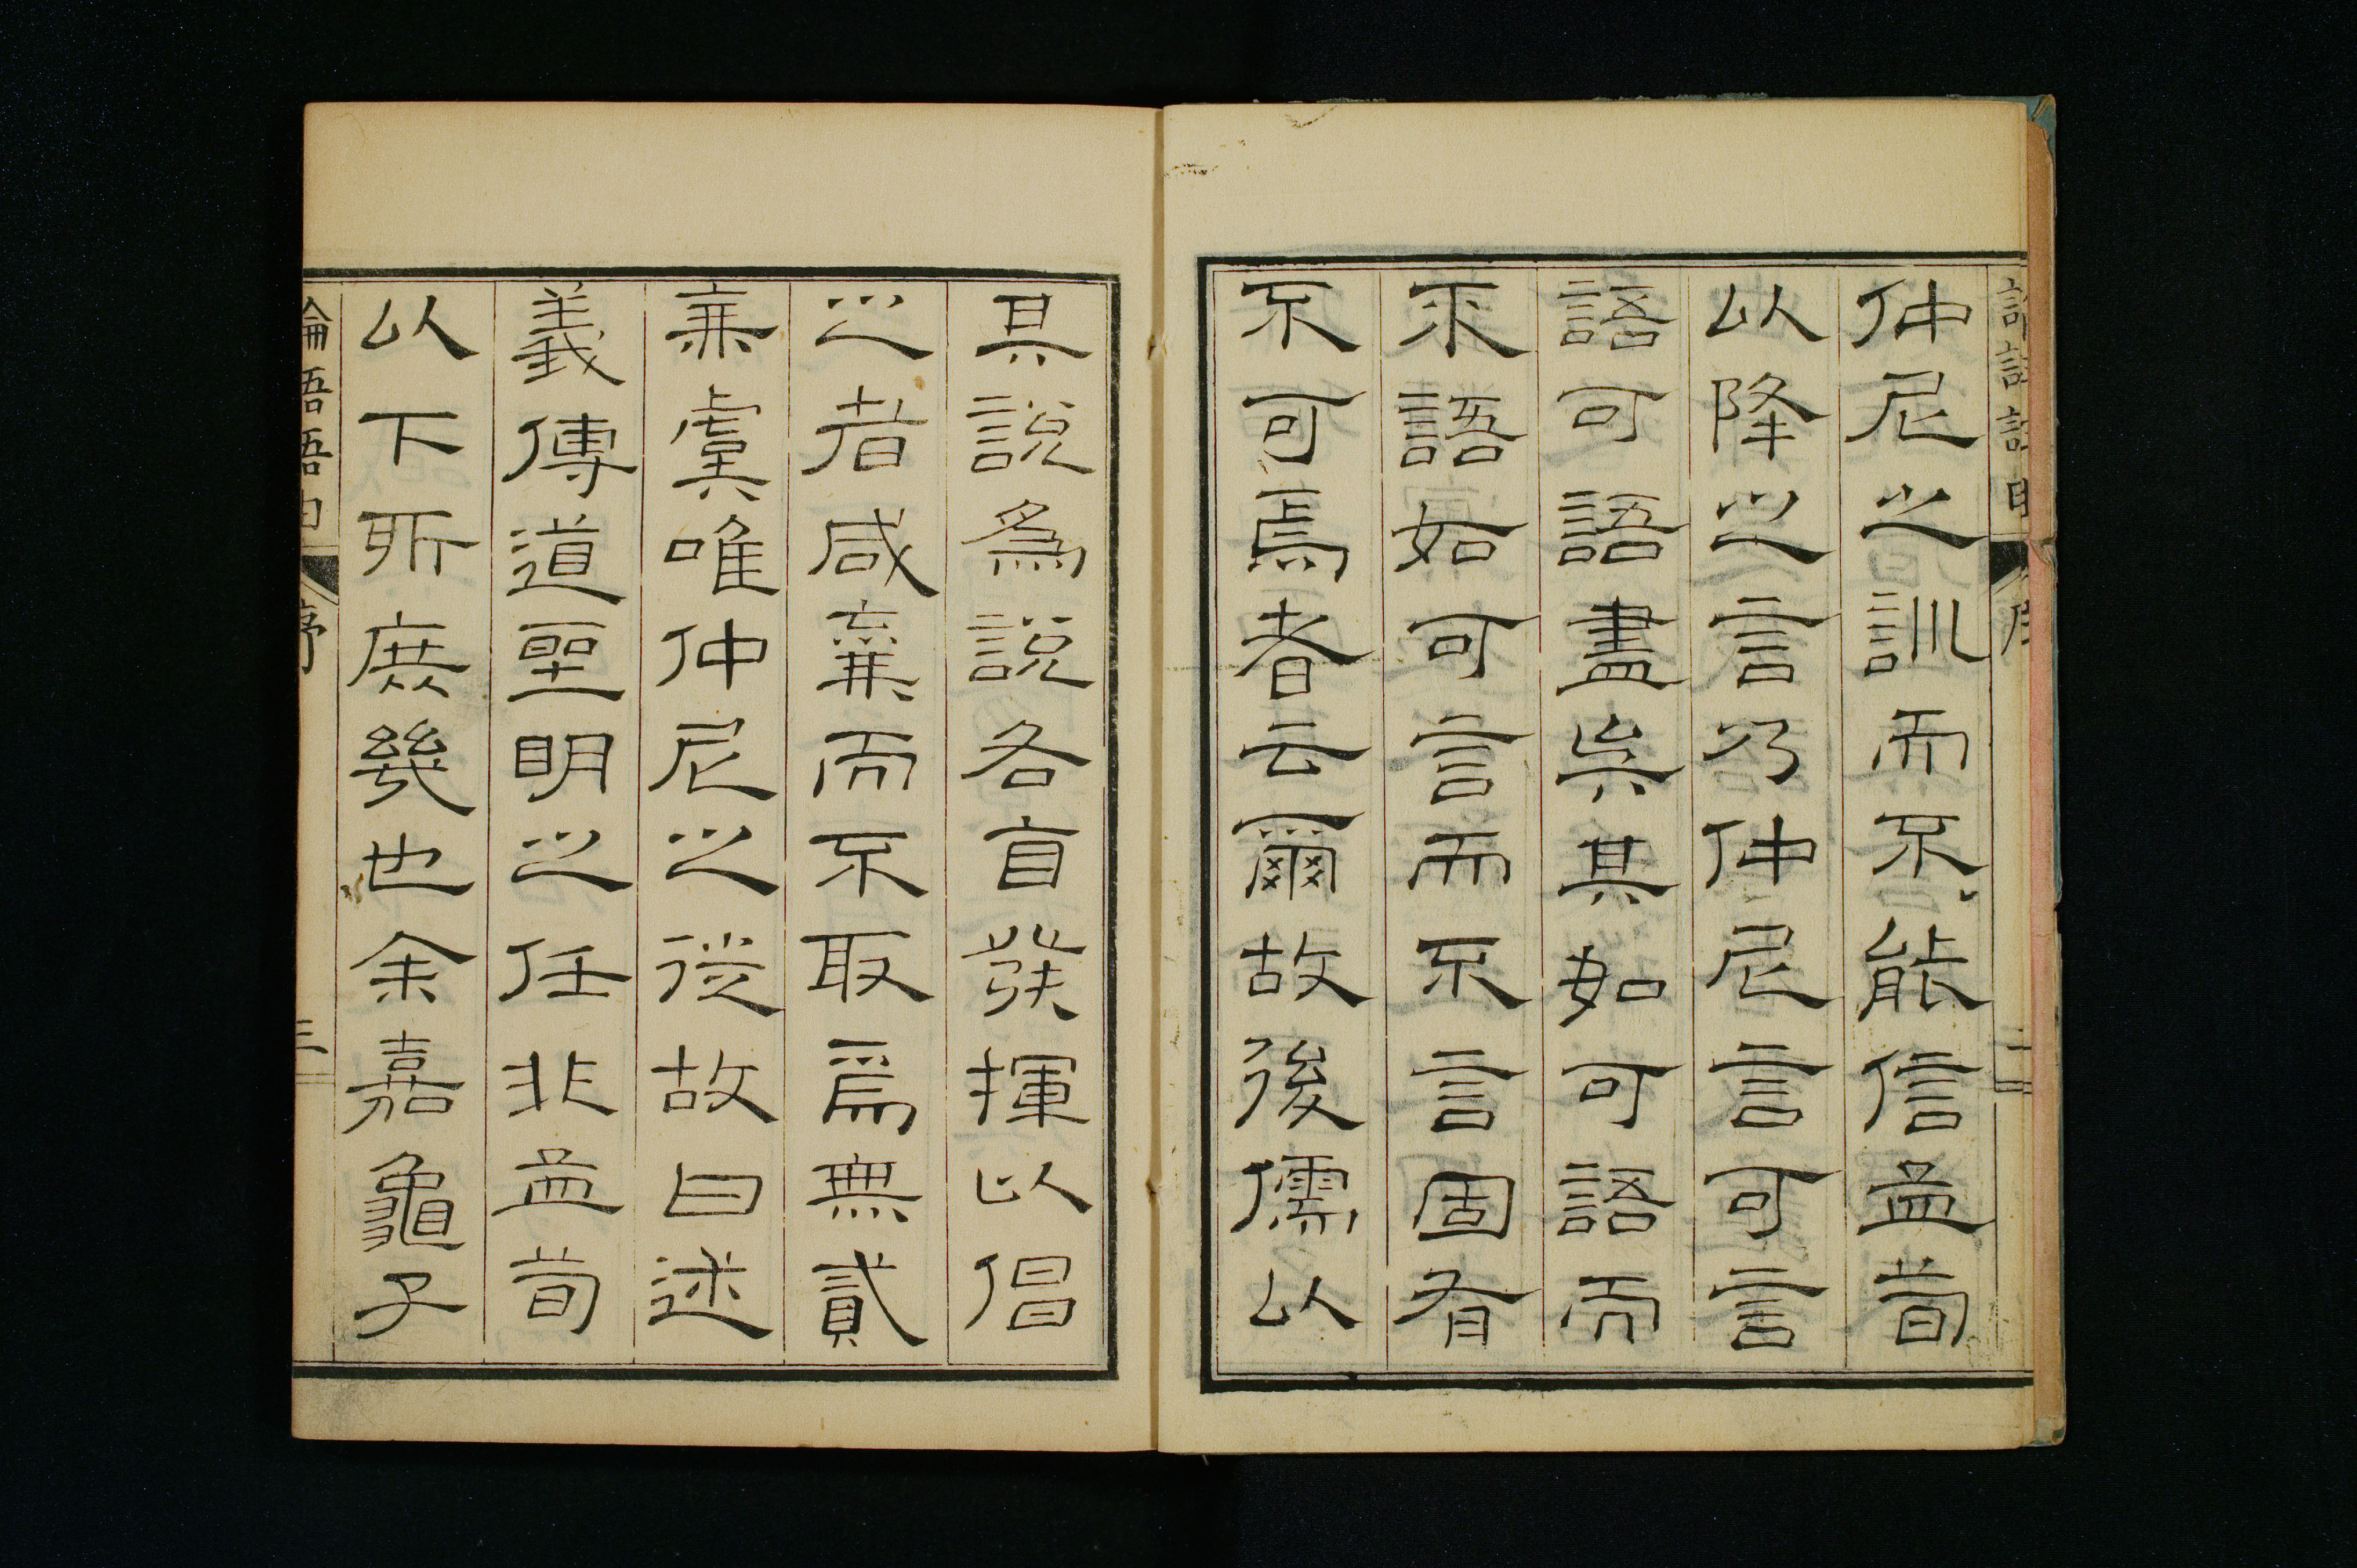 論語語由 序 二
仲尼之訓而不能信孟荀
以降之言乃仲尼言可言
語可語盡矣其如可語而
不語如可言而不言固有
不可焉者云爾故後儒以
其說爲說各自發揮以倡
之者咸棄而不取爲無貳
無虞唯仲尼之從故曰述
義傳道聖明之任非孟荀
以下所庶幾也余嘉龜子
論語語由 序 三